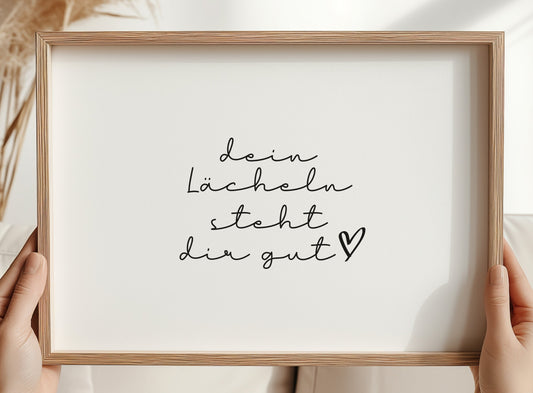 dein
Lächeln
steht
dir gut